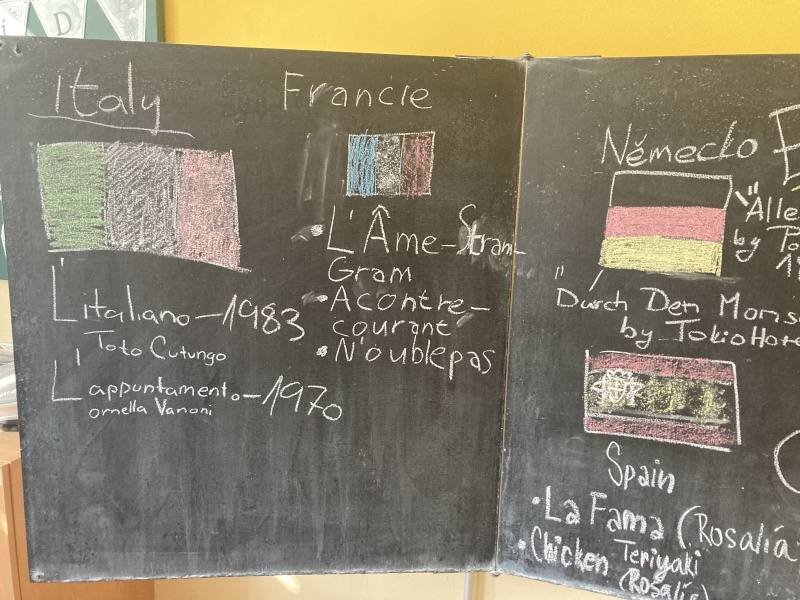 Italy
L'italiano - 1983
Toto Cutungo
L'appuntamento - 1970
ornella Vanoni
Francie
• L'Âme - Stram-
Gram
• A contre-
courant
• N'oublepas
Německo
"Alle
by
"Durch Den Mons
by Tokio Hote
Spain
• La Fama (Rosalía
• Chicken Teriyaki
(Rosalía)
D